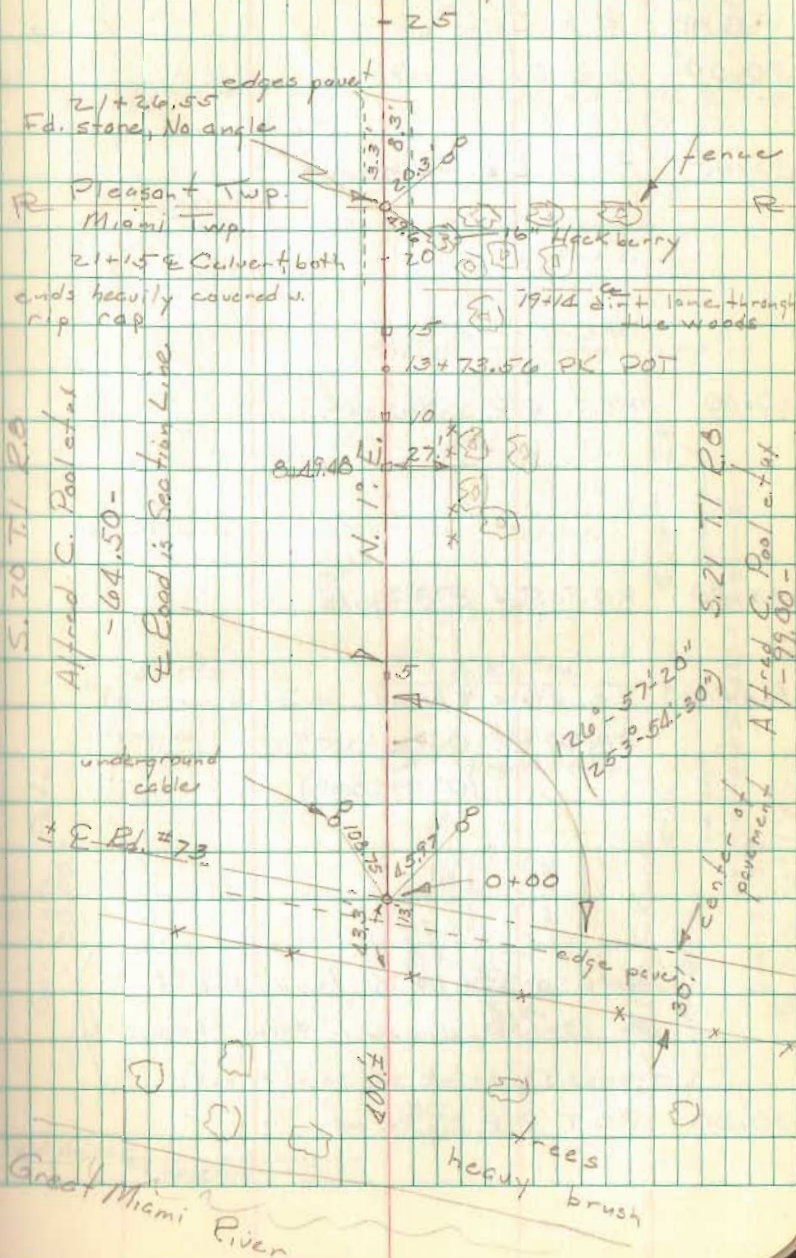 - 25
edges pavet
21+26.55
Fd. stone, No angle
3.3'
8.3'
20.3'
fence
PL Pleasant Twp. PL
Miami Twp.
47.6
16" Hackberry
21+15 ℄ Culvert, both
ends heavily covered w.
rip rap
20
19+14 ℄ dirt lane through
the woods
15
13+73.56 PK POT
10
8+49.48
27'
N. 1° E.
S. 20 T.1 R.8
Alfred C. Pool etux
-64.50-
℄ Road is Section Line
S.21 T.1 R.8
Alfred C. Pool etux
-99.00-
5
126°-57'-20"
(253°-54'-30")
underground
cable
108.75
45.97'
± ℄ Rd. #73
0+00
center of
pavement
43.3'
11.3'
edge pavet
30'
400.±
trees
heavy brush
Great Miami River